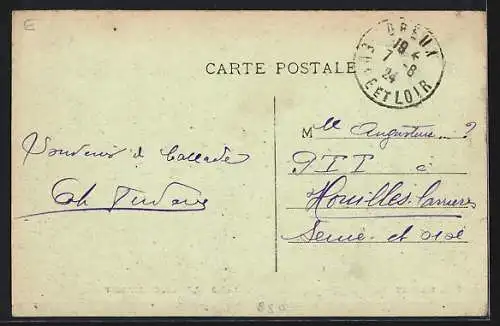 E
DREUX
19 4
7 -8
24
EURE ET LOIR
CARTE POSTALE
Souvenir de
Mlle Augustine
PTT à
Houilles-Carrières
Seine et Oise